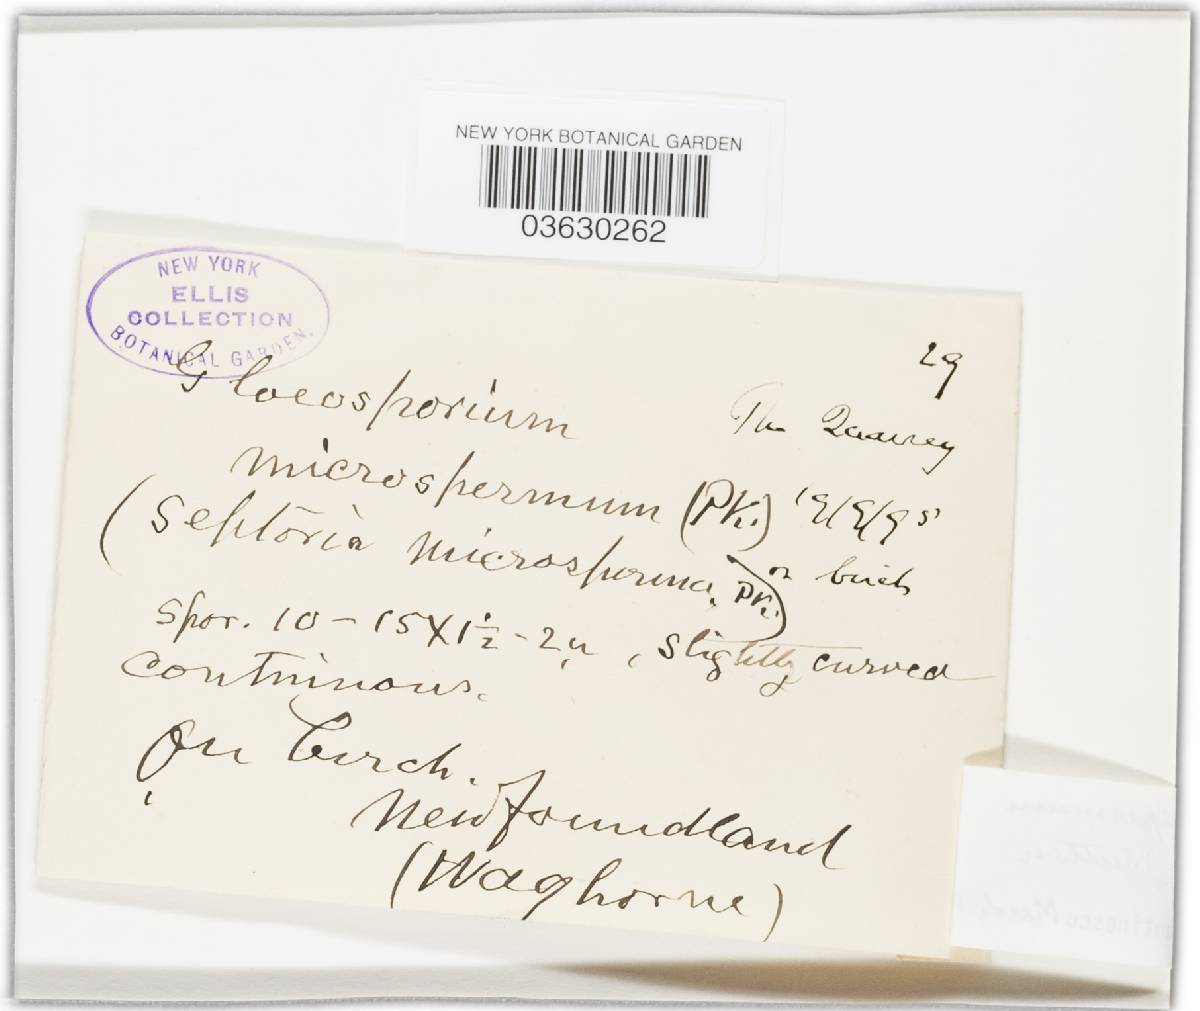 NEW YORK BOTANICAL GARDEN
03630262
NEW YORK
ELLIS
COLLECTION
BOTANICAL GARDEN.
29
Gloeosporium
The Quarrey
microspermum (Pk.)
(Septoria microsperma, Pk.)
on birch
spor. 10-15X1½-2µ, slightly curved
continuous.
On birch.
Newfoundland
(Waghorne)